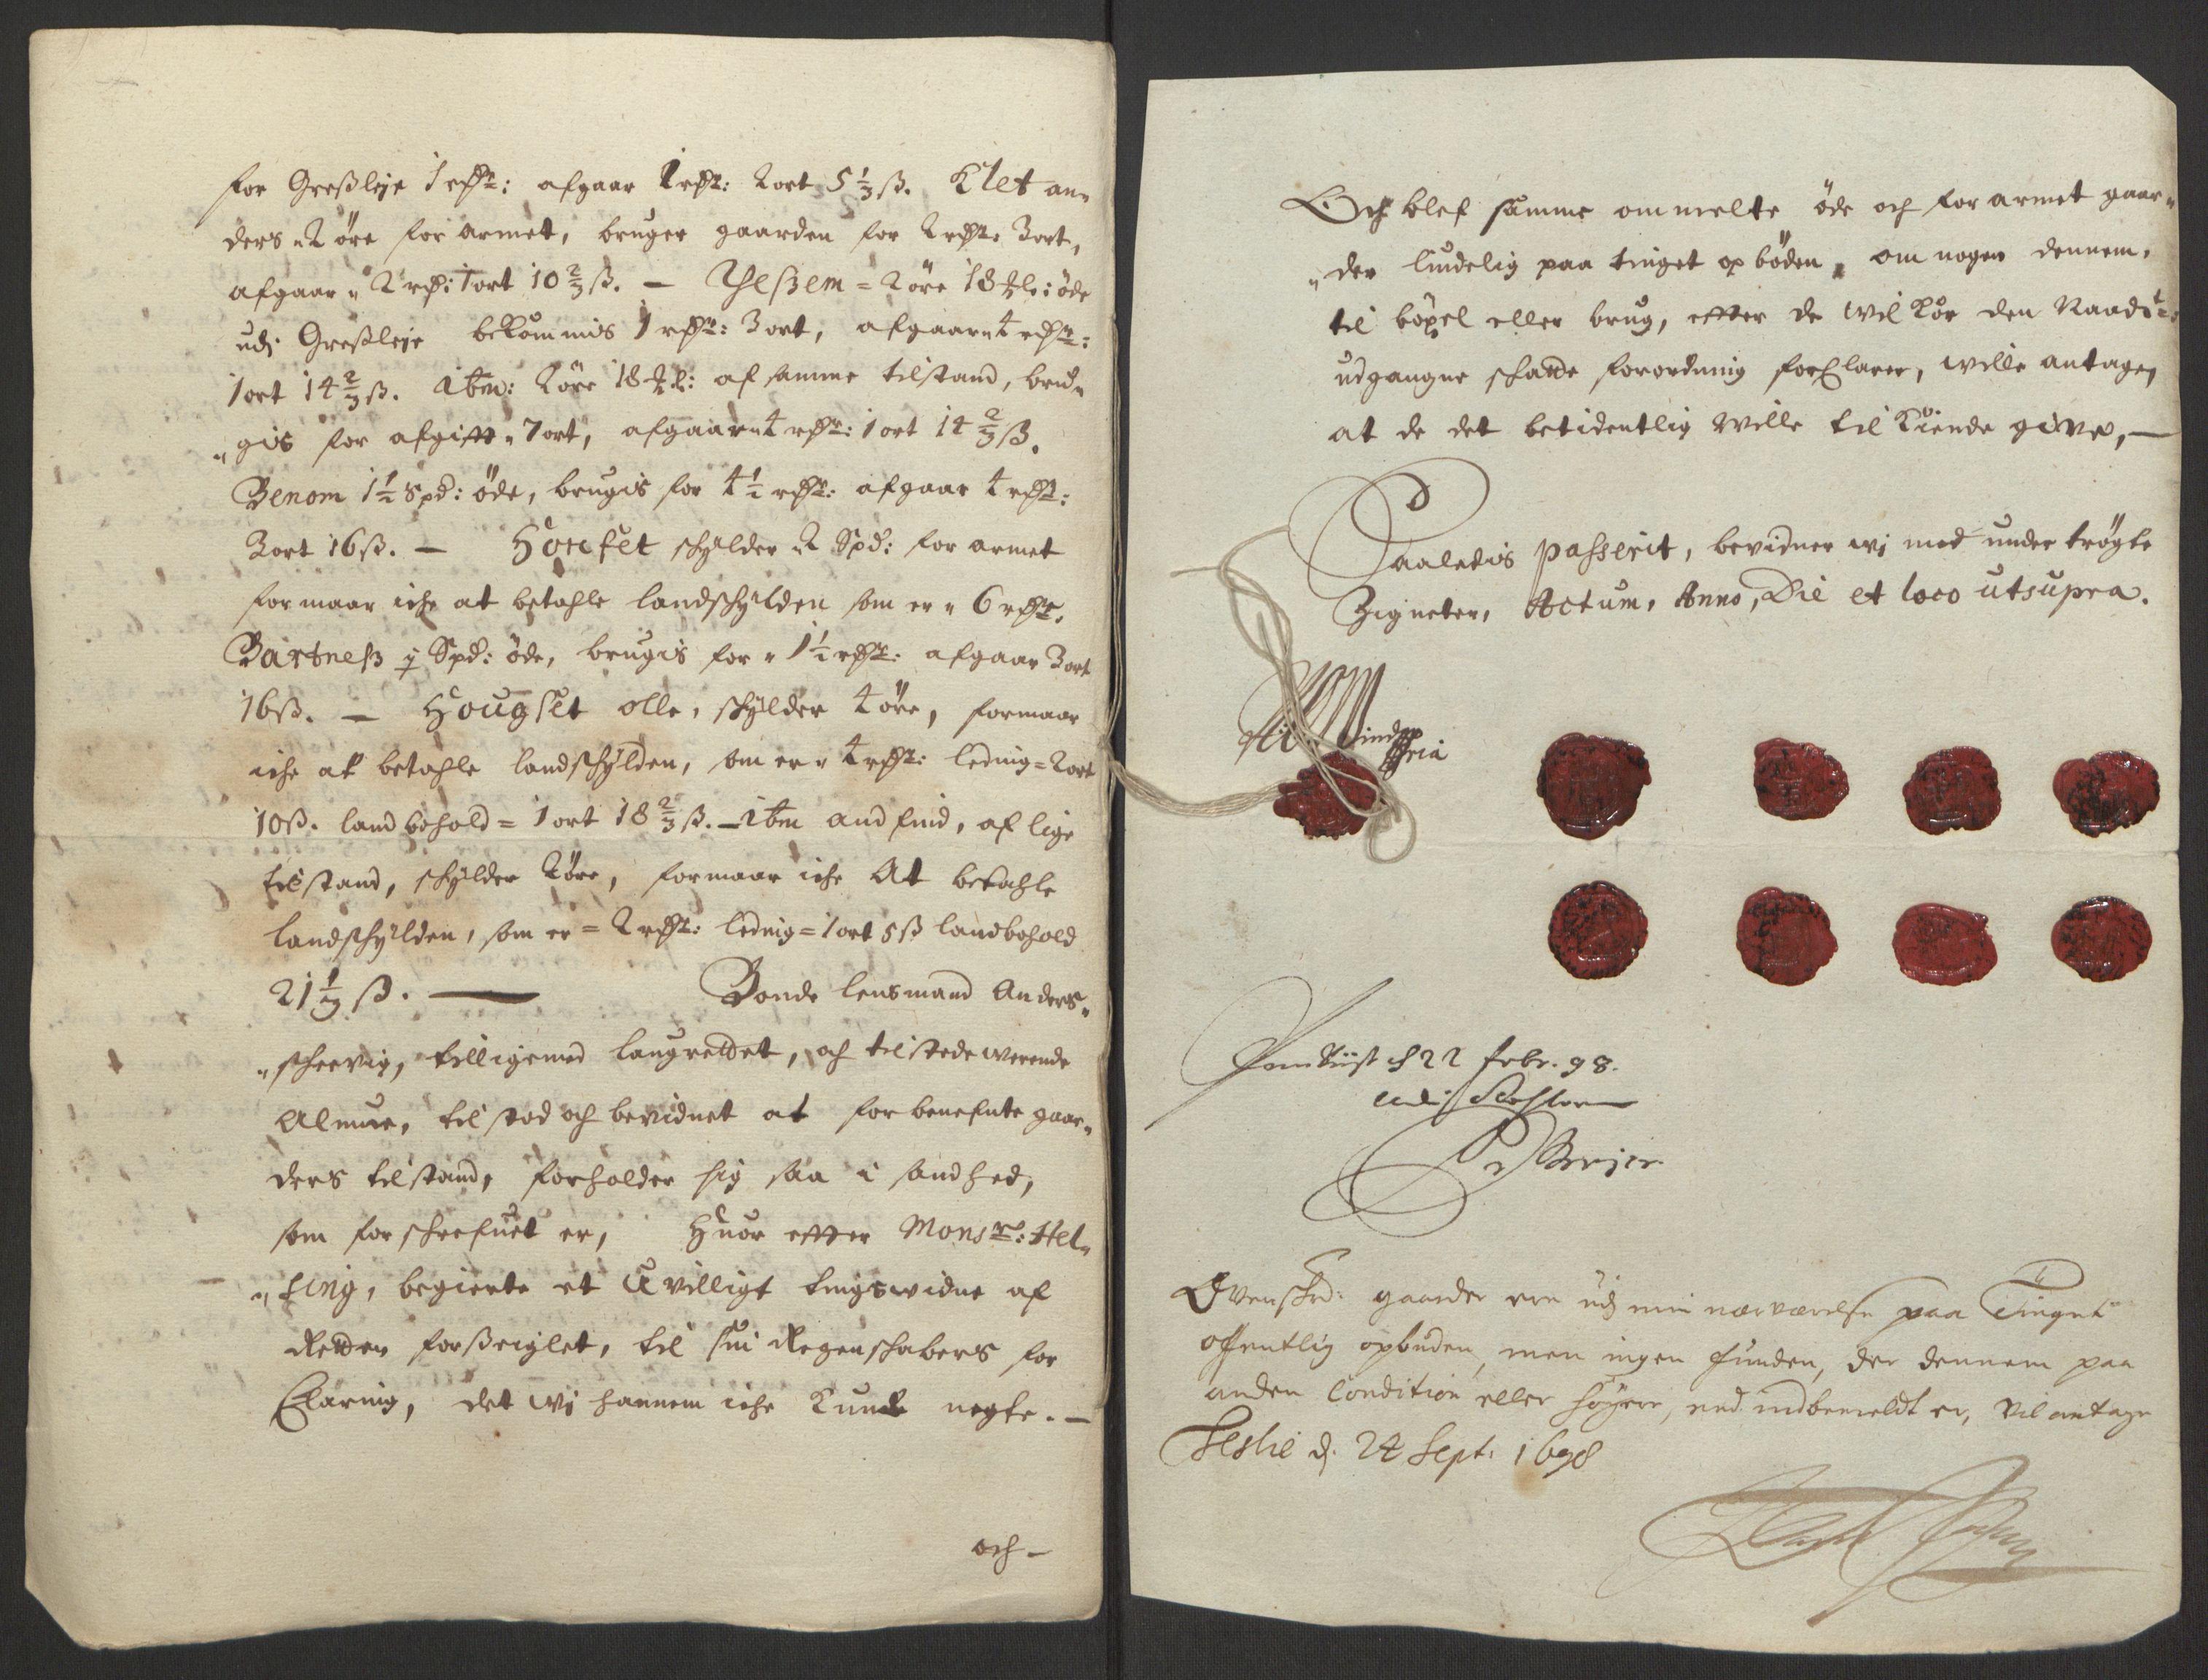 for Greßleje 1 rdr: afgaar 1 rdr: 2 ort 5 1/3 ß. Klet an„
ders 2 öre for armet, bruger gaarden for 2 rdr 3 ort,
afgaar „ 2 rdr: 1 ort 10 2/3 ß. — Theßem = 2 öre 18 öde
udj Greßleje bekommis 1 rdr: 3 ort, afgaar 4 rdr:
1 ort 14 2/3 ß. ibm: 2 öre 18 : af samme tilstand, bru„
„gis for afgifft „ 7 ort, afgaar 4 rdr: 1 ort 14 2/3 ß.
Benom 1 1/2 Spd: öde, brugis for 4 1/2 rdr: afgaar 4 rdr:
3 ort 16 ß. — schylder 2 Spd: for armet
formaar iche at betahle landschylden som er „ 6 rdr.
Bartneß j Spd: öde, brugis for „ 1 1/2 rdr: afgaar 3 ort
16 ß. — Hougset olle, schylder 4 öre, formaar
iche at betahle landschylden, som er „ 4 rdr: leding = 2 ort
10 ß. landbohold = 1 ort 18 2/3 ß. — ibm andfind, af lige
tilstand, schylder 2 öre, formaar iche At betahle
landschylden, som er = 2 rdr: leding = 1 ort 5 ß landbohold
21 1/3 ß. — Bonde lensmand Anders„
„scheevig, tilligemed laugrettet, och tilstedewerende
Almue, tilstod och bevidnet at forbenefnte gaar„
ders tilstand, forholder sig saa i sandhed,
som forschrefuet er, Huor effter Monsr: Hel„
„ting, begierte et uvilligt tingswidne af
Retten forßeiglet, til sin Regenschabers for
Claring, det wj hannem iche kunde negte. —
och —
Och blef samme ommelte öde och forarmet gaar„
„der liudelig paa tinget opböden, om nogen dennem,
til böxel eller brug, effter de Vilkor den Naadigste
udgangne schatte forordning forklarer, wille antage,
at de det betidentlig wille tilkiende give, —
Saaledis passerit, bevidner wj med undertrögte
Zigneter, Actum, Anno, Die et loco utsupra.
d 22 febr. 98.
Ovenskr: gaarder ere udj min nærværelse paa Tinget
offentlig opbuden, men ingen funden, der dennem paa
anden Condition eller höyere, end indbemeldt er, vil antage
d. 24 Sept: 1698